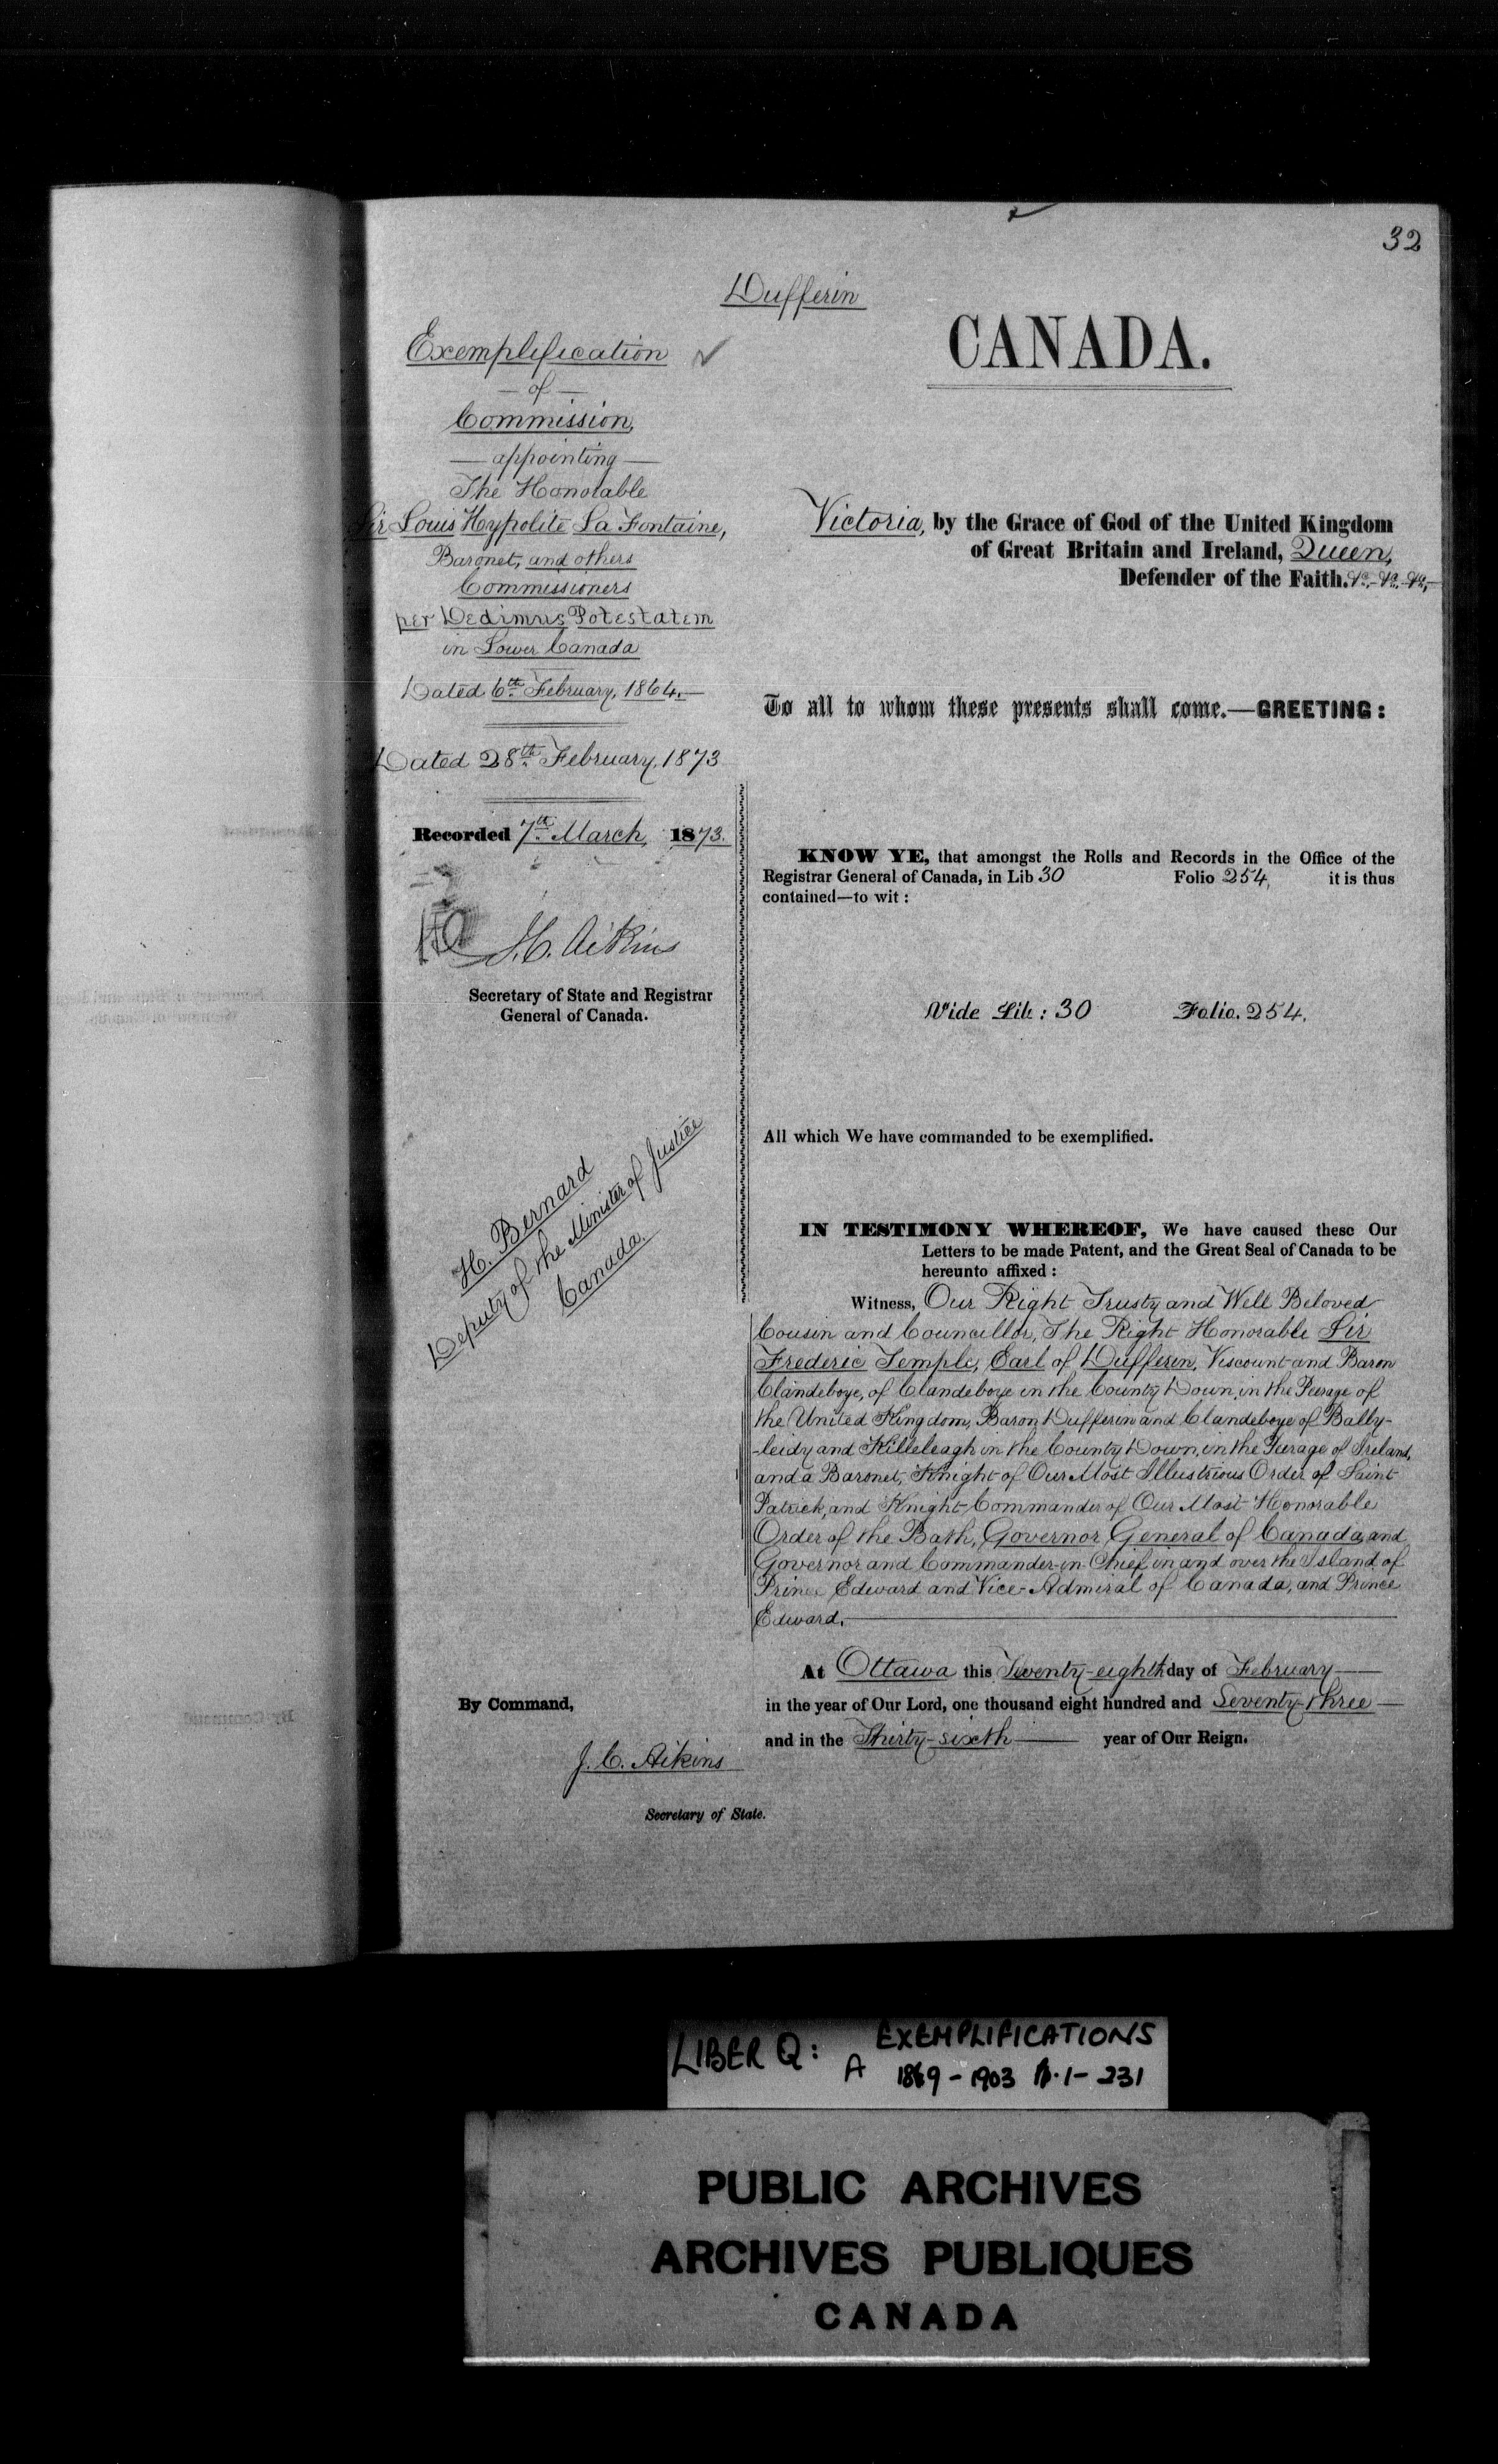 32
Dufferin
CANADA.
Exemplification
— of —
Commission,
— appointing —
The Honorable
Sir Louis Hypolite La Fontaine,
Baronet, and others
Commissioners
per Dedimus Potestatem
in Lower Canada
Dated 6th February, 1864.—
Dated 28th February, 1873
Recorded 7th March, 1873.
J.C. Aikins
Secretary of State and Registrar
General of Canada.
H. Bernard
Deputy of the Minister of Justice
Canada.
Victoria, by the Grace of God of the United Kingdom
of Great Britain and Ireland, Queen,
Defender of the Faith. &c. &c. &c.
To all to whom these presents shall come.—GREETING:
KNOW YE, that amongst the Rolls and Records in the Office of the
Registrar General of Canada, in Lib 30 Folio 254, it is thus
contained—to wit:
Vide Lib: 30 Folio. 254.
All which We have commanded to be exemplified.
IN TESTIMONY WHEREOF, We have caused these Our
Letters to be made Patent, and the Great Seal of Canada to be
hereunto affixed:
Witness, Our Right Trusty and Well Beloved
Cousin and Councillor, The Right Honorable Sir
Frederic Temple, Earl of Dufferin, Viscount and Baron
Clandeboye, of Clandeboye in the County Down, in the Peerage of
the United Kingdom, Baron Dufferin and Clandeboye of Bally-
-leidy and Killeleagh in the County Down, in the Peerage of Ireland,
and a Baronet, Knight of Our Most Illustrious Order of Saint
Patrick, and Knight Commander of Our Most Honorable
Order of the Bath, Governor General of Canada, and
Governor and Commander-in-Chief in and over the Island of
Prince Edward and Vice-Admiral of Canada, and Prince
Edward.
At Ottawa this Twenty-eighth day of February
in the year of Our Lord, one thousand eight hundred and Seventy-three
and in the Thirty-sixth year of Our Reign.
By Command,
J. C. Aikins
Secretary of State.
LIBER Q: EXEMPLIFICATIONS
A 1869-1903 pp. 1-231
PUBLIC ARCHIVES
ARCHIVES PUBLIQUES
CANADA